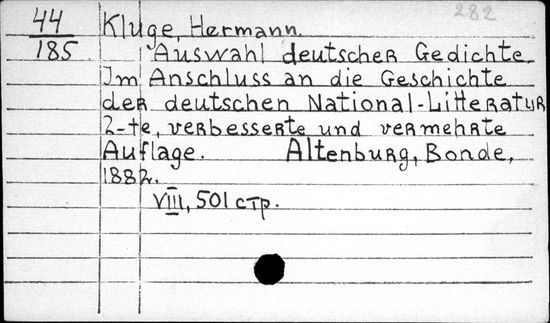 282
44
185
Kluge, Hermann.
Auswahl deutscher Gedichte.
Im Anschluss an die Geschichte
der deutschen National-Litteratur
2-te, verbesserte und vermehrte
Auflage. Altenburg, Bonde,
1882.
VIII, 501 стр.